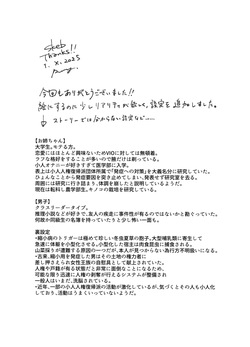 Skeb
Thanks!!
1. X. 2025
今回もありがとうございました!!
絵にするのに少しリアリティが欲しくて、設定を追加しました。
↓ ストーリーでは分からない設定など……
【お姉ちゃん】
大学生。モテる方。
恋愛にはほとんど興味ないためVIOに対しては無頓着。
ラフな格好をすることが多いので隙だけは剃っている。
小人オナニーが好きすぎて医学部に入学。
表上は小人人権保護団体所属で「発症への対策」を大義名分に研究していた。
ひょんなことから発症要因を突き止めてしまい、発表せず研究室を去る。
周囲には研究に行き詰まり、体調を崩したと説明しているようだ。
現在は転科し、菌学部生。キノコの栽培を研究している。
【男子】
クラスリーダータイプ。
推理小説などが好きで、友人の疾走に事件性が有るのではないかと勘ぐっていた。
何故か同級生の名簿を持っていたりと少し怖い一面も。
裏設定
・縮小病のトリガーは極めて珍しい冬虫夏草の胞子。大型哺乳類に寄生して
急速に体躯を小型化させる。小型化した宿主は肉食昆虫に捕食される。
山菜採りが遭難する原因の一つだが、本人が見つからない為行方不明扱いになる。
・古来、縮小病を発症した男はその土地の権力者に
差し押さえられ女性王族の自慰具として献上されていた。
人権や戸籍が有る状態だと非常に面倒なことになるため、
可能な限り迅速に人権の剥奪が行えるシステムが整備され
一般人はいまだ、洗脳されている。
・近年、一部の小人人権保護派の活動が激化しているが、気づくとその人も小人化
しており、活動はうまくいっていないようだ。